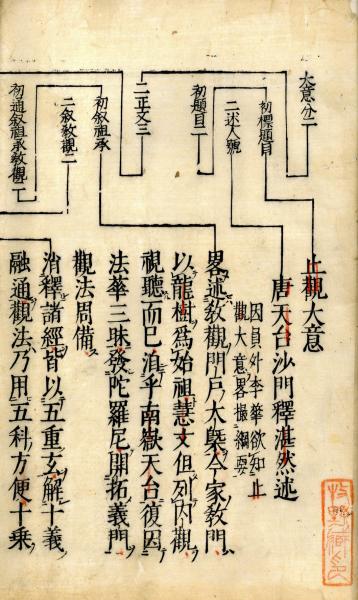 大意分二
初標題目
二述人號
初題目二
二正文三
初叙祖承
二叙教觀二
初通叙祖承教觀二
止觀大意
唐天台沙門釋湛然述
因員外李華欲知止
觀大意畧撮綱要
畧述教觀門戶大槩今家教門
以龍樹爲始祖慧文但列內觀
視聽而已洎乎南嶽天台復因
法華三昧發陀羅尼開拓義門
觀法周備
消釋諸經皆以五重玄解十義
融通觀法乃用五科方便十乗